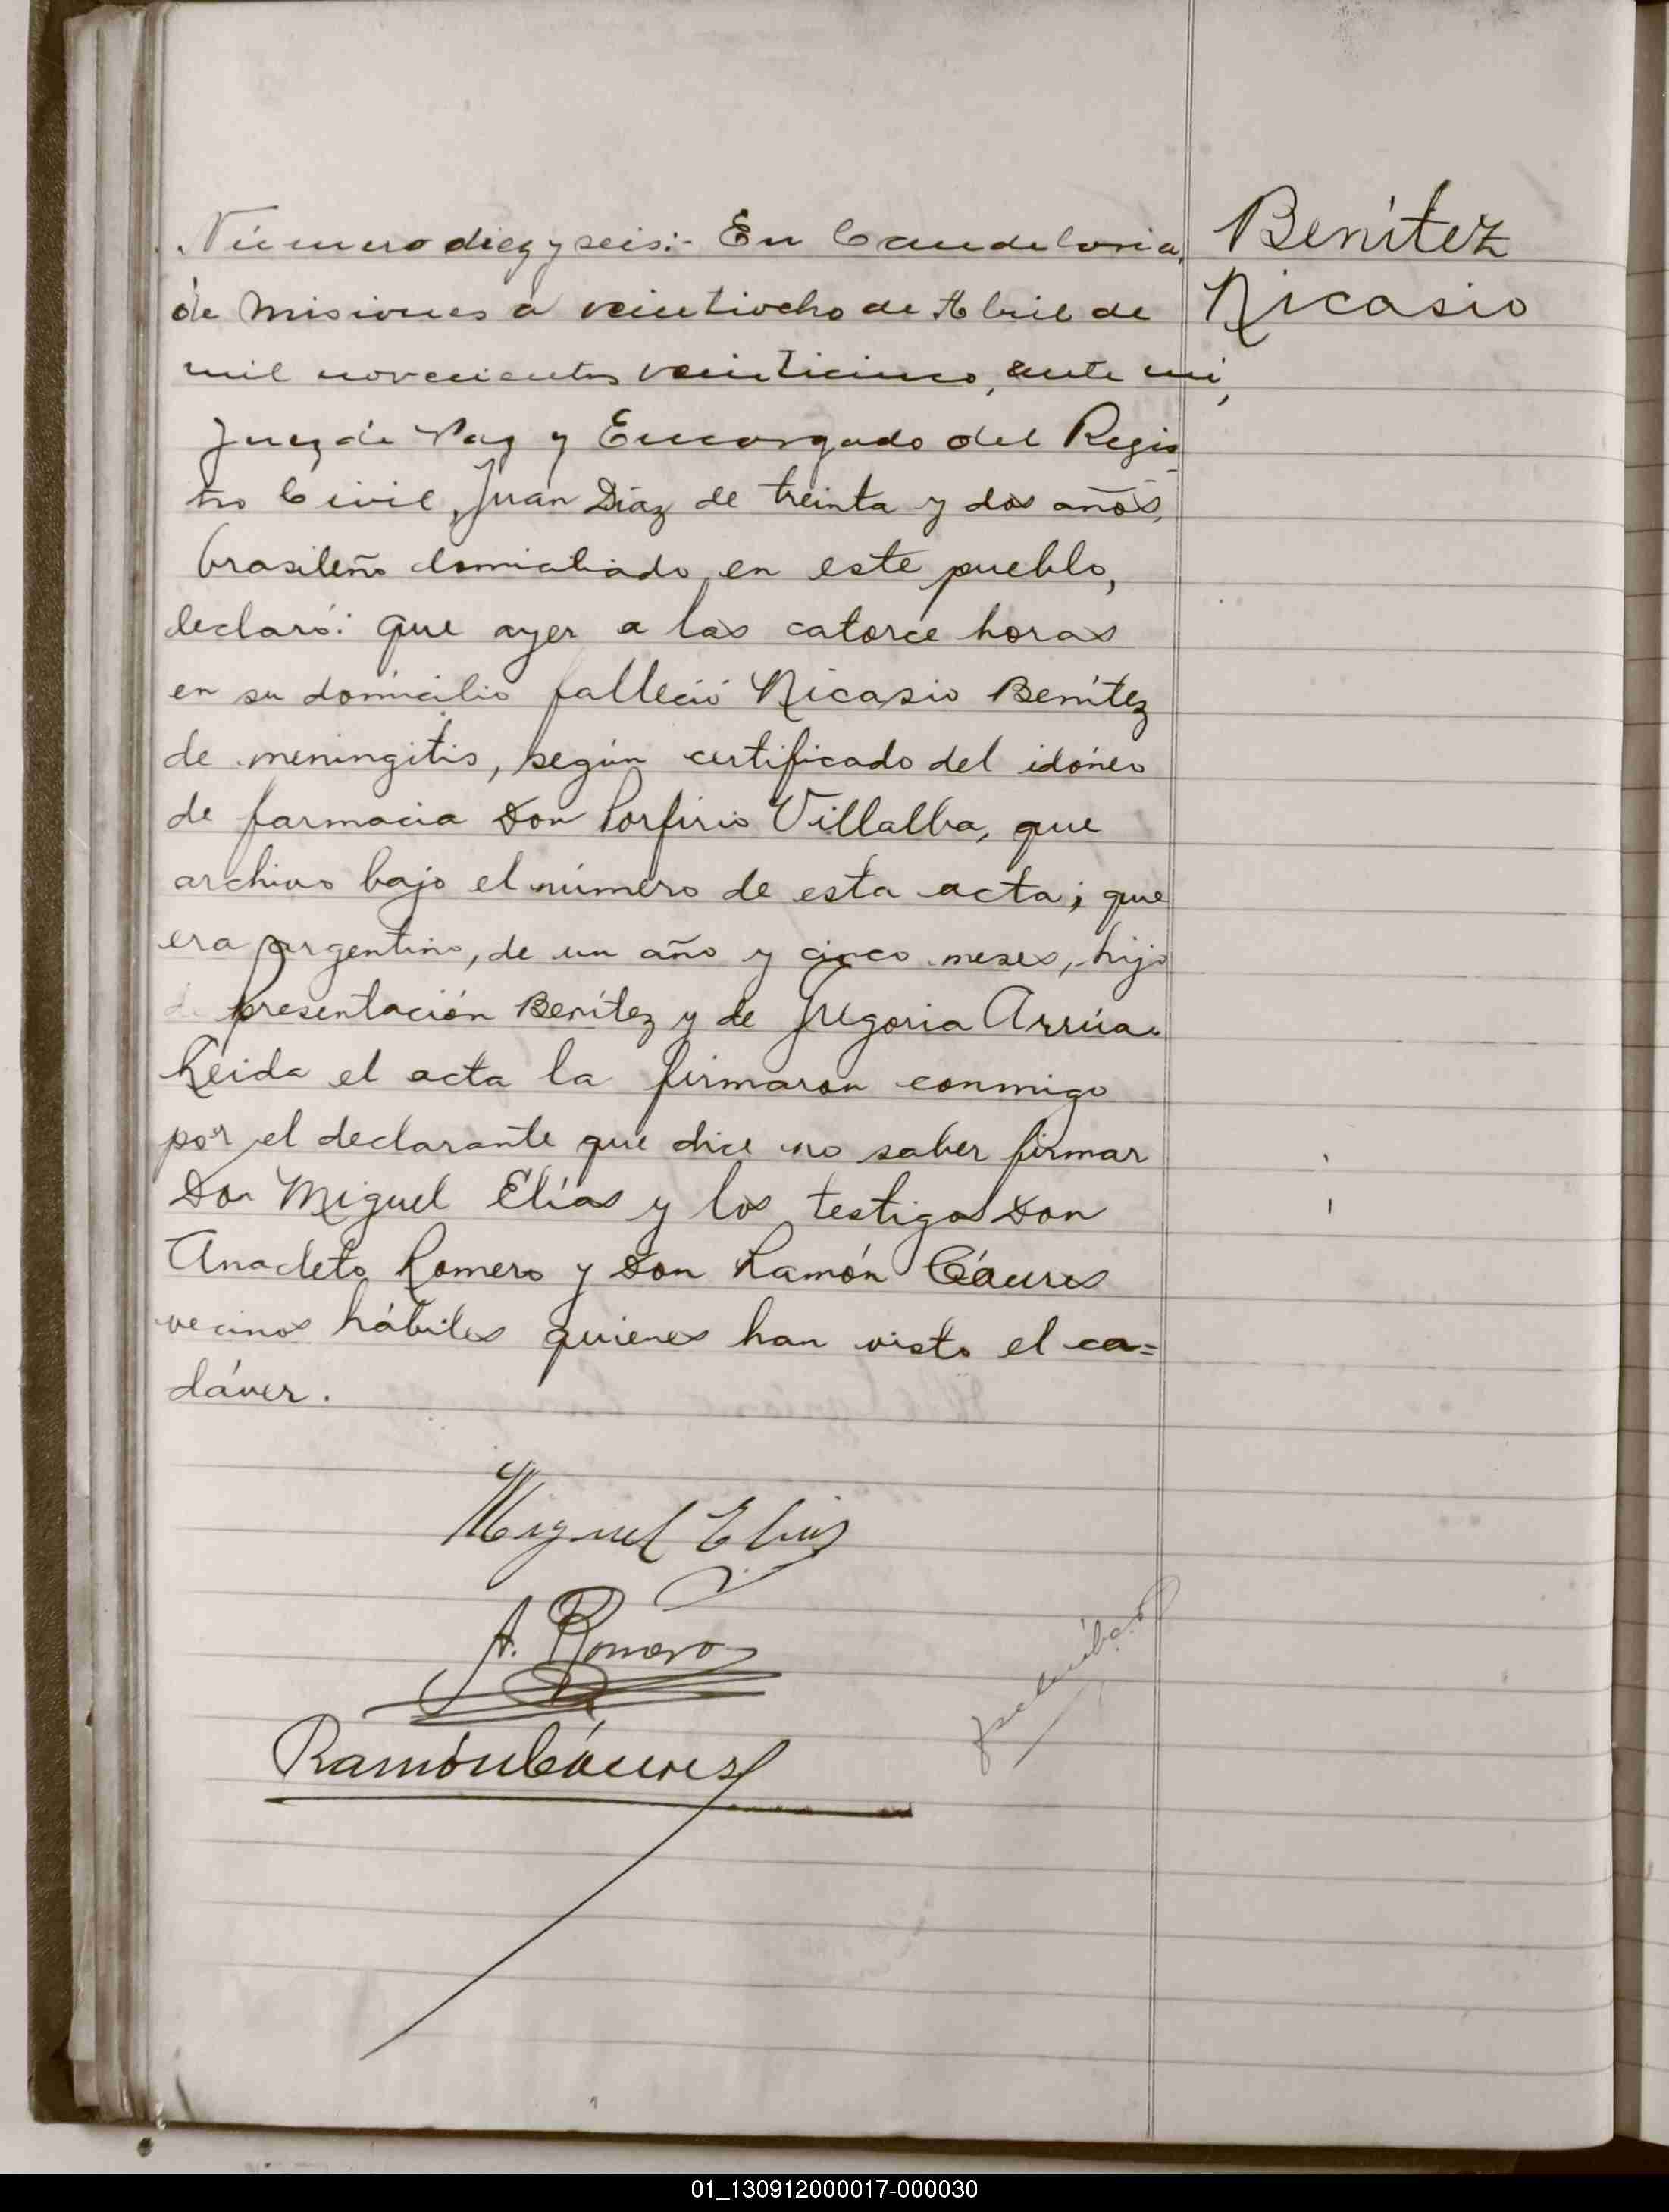 Número diez y seis:- En Candelaria,
de Misiones a veintiocho de Abril de
mil novecientos veinticinco, ante mi,
Juez de Paz y Encargado del Regis
tro Civil, Juan Díaz de treinta y dos años,
brasileño domiciliado en este pueblo,
declaró: que ayer a las catorce horas
en su domicilio falleció Nicasio Benítez
de meningitis, según certificado del idóneo
de farmacia Don Porfirio Villalba, que
archivo bajo el número de esta acta; que
era argentino, de un año y cinco meses, hijo
de Presentación Benítez y de Gregoria Arrúa.
Leida el acta la firmaron conmigo
por el declarante que dice no saber firmar
Don Miguel Elías y los testigos Don
Anacleto Romero y Don Ramón Cáceres
vecinos hábiles quienes han visto el ca=
dáver.
Benítez
Nicasio
Miguel Elias
A. Romero
Ramón Cáceres
01_130912000017-000030